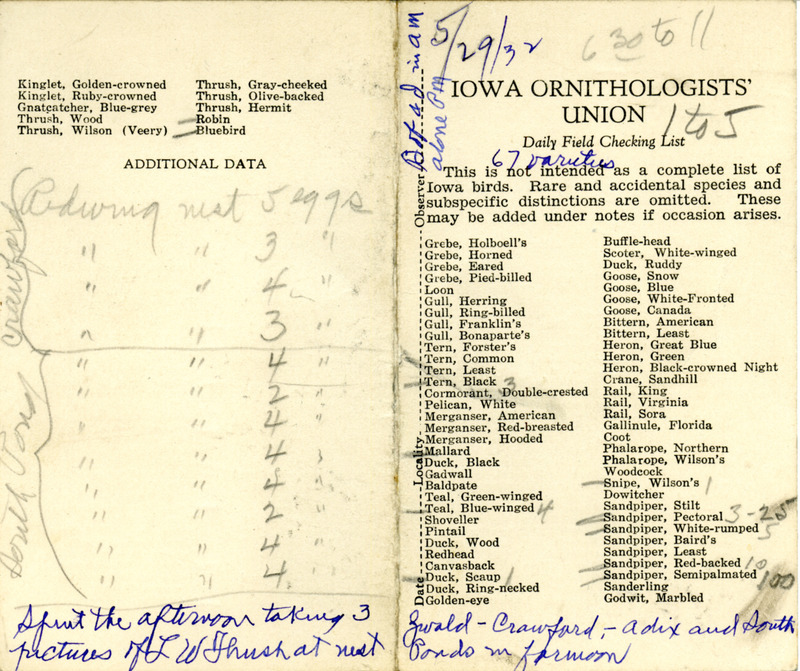 Kinglet, Golden-crowned
Kinglet, Ruby-crowned
Gnatcatcher, Blue-grey
Thrush, Wood
Thrush, Wilson (Veery)
Thrush, Gray-cheeked
Thrush, Olive-backed
Thrush, Hermit
Robin
Bluebird
ADDITIONAL DATA
Crawford
Redwing nest 5 eggs
" " 3 "
" " 4 "
" " 3 "
South Pond
" " 4 "
" " 2 "
" " 4 "
" " 4 "
" " 4 "
" " 2 "
" " 4 "
" " 4 "
Spent the afternoon taking 3
pictures of L W Thrush at nest
5/29/32
6 30 to 11
IOWA ORNITHOLOGISTS'
UNION
1 to 5
Daily Field Checking List
67 varieties
This is not intended as a complete list of
Iowa birds. Rare and accidental species and
subspecific distinctions are omitted. These
may be added under notes if occasion arises.
Observer
in a m
alone P M
Locality
Date
Grebe, Holboell's
Grebe, Horned
Grebe, Eared
Grebe, Pied-billed
Loon
Gull, Herring
Gull, Ring-billed
Gull, Franklin's
Gull, Bonaparte's
Tern, Forster's
Tern, Common
Tern, Least
Tern, Black 3
Cormorant, Double-crested
Pelican, White
Merganser, American
Merganser, Red-breasted
Merganser, Hooded
Mallard
Duck, Black
Gadwall
Baldpate
Teal, Green-winged
Teal, Blue-winged 4
Shoveller
Pintail
Duck, Wood
Redhead
Canvasback
Duck, Scaup 1
Duck, Ring-necked
Golden-eye
Buffle-head
Scoter, White-winged
Duck, Ruddy
Goose, Snow
Goose, Blue
Goose, White-Fronted
Goose, Canada
Bittern, American
Bittern, Least
Heron, Great Blue
Heron, Green
Heron, Black-crowned Night
Crane, Sandhill
Rail, King
Rail, Virginia
Rail, Sora
Gallinule, Florida
Coot
Phalarope, Northern
Phalarope, Wilson's
Woodcock
Snipe, Wilson's 1
Dowitcher
Sandpiper, Stilt
Sandpiper, Pectoral 3-25
Sandpiper, White-rumped 5
Sandpiper, Baird's
Sandpiper, Least
Sandpiper, Red-backed 10
Sandpiper, Semipalmated 100
Sanderling
Godwit, Marbled
Zwald - Crawford, - Adix and South
Ponds in formoon